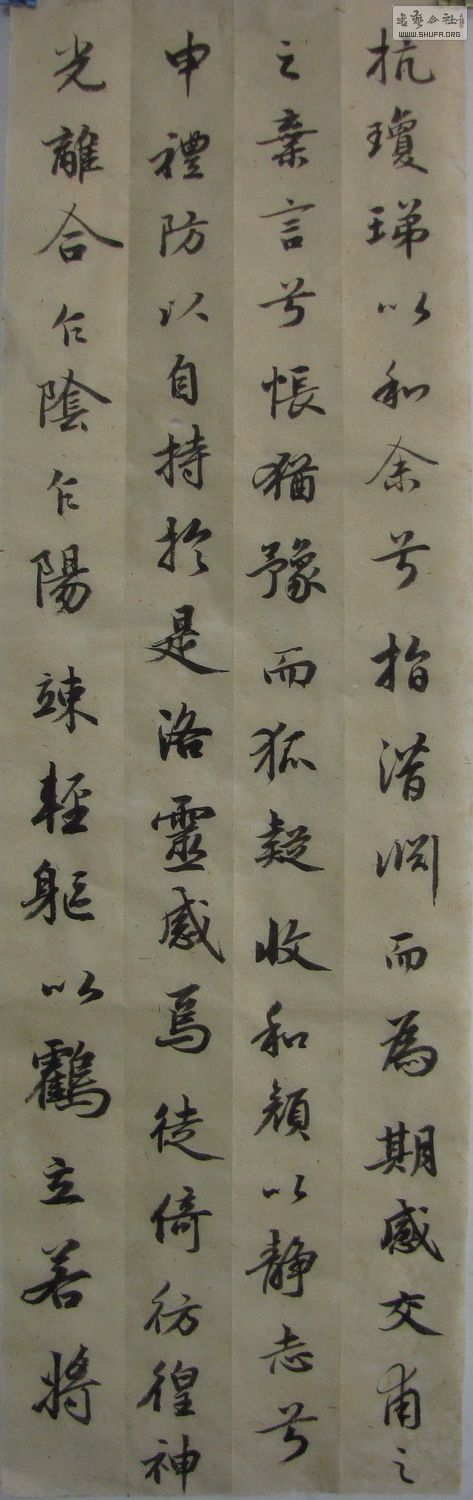 書藝公社
WWW.SHUFA.ORG
抗瓊珶以和余兮指潛淵而為期感交甫之
之棄言兮悵猶豫而狐疑收和顏以静志兮
申禮防以自持於是洛靈感焉徒倚彷徨神
光離合乍陰乍陽竦輕軀以鶴立若將